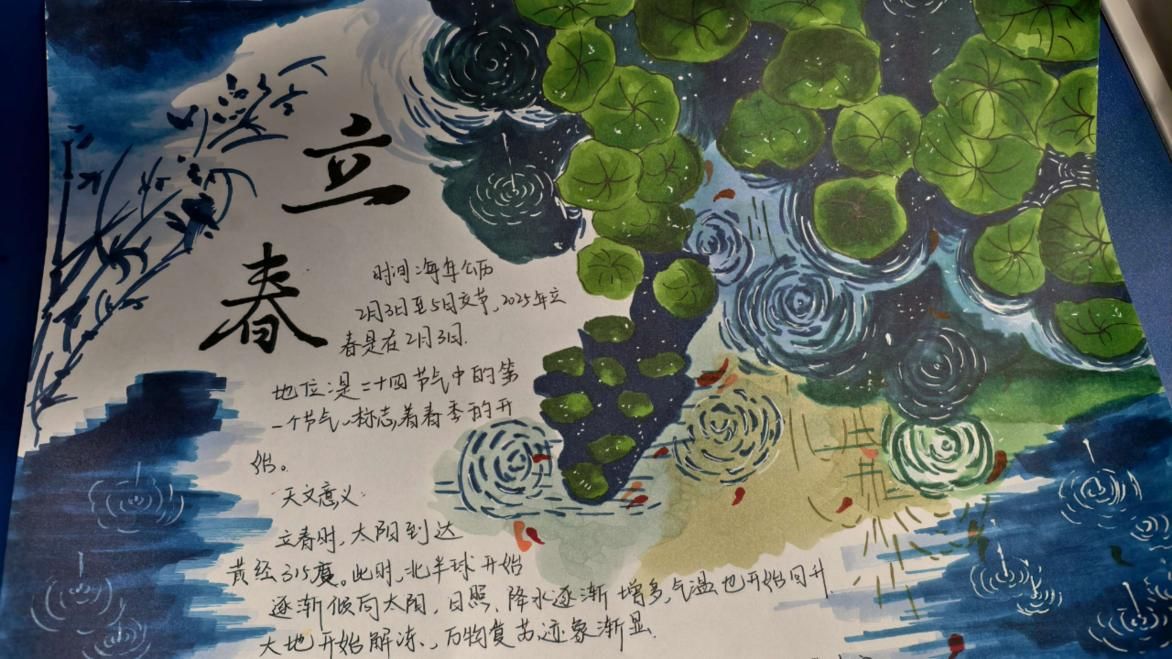 立
春
时间:每年公历
2月3日至5日交节,2025年立
春是在2月3日.
地位:是二十四节气中的第
一个节气、标志着春季的开
始。
天文意义
立春时,太阳到达
黄经315度。此时,北半球开始
逐渐倾向太阳,日照、降水逐渐增多,气温也开始回升.
大地开始解冻、,万物复苏迹象渐显.